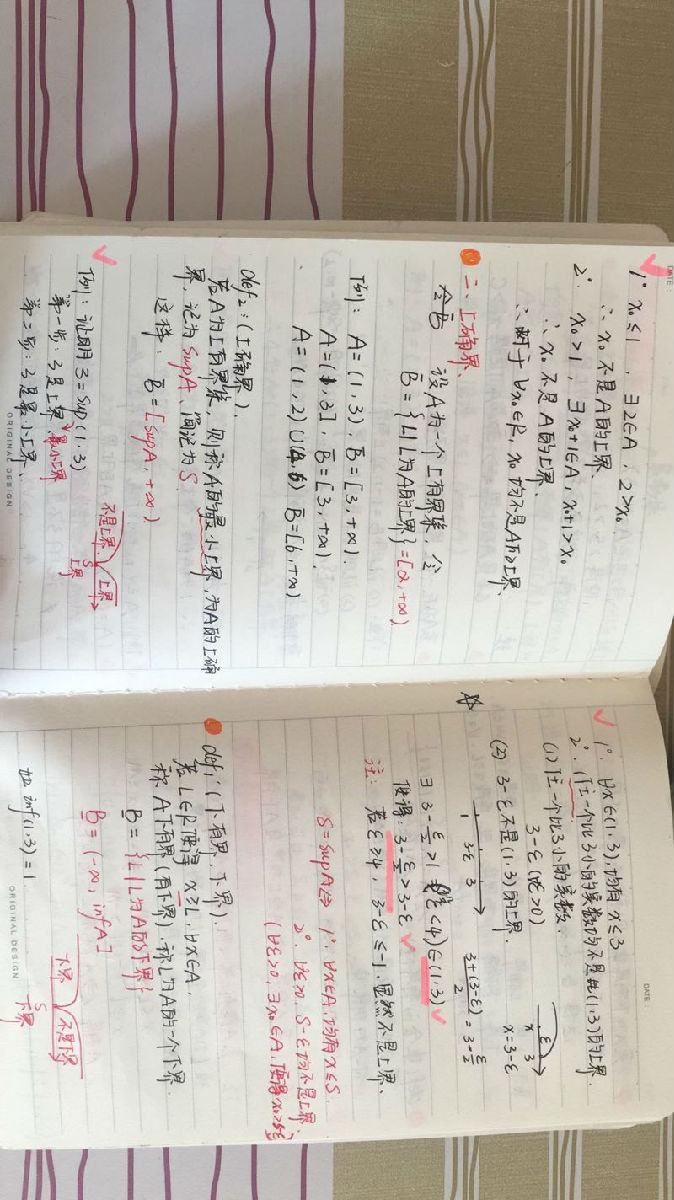 DATE:
1° x₀≤1 , ∃2∈A , 2>x₀
∴ x₀ 不是A的上界.
2° x₀>1 , ∃x₀+1∈A, x₀+1>x₀
∴ x₀ 不是A的上界.
∴对于∀x₀∈R, x₀ 均不是A的上界.
二、上确界.
设A为一个上有界集, 令
B̄={L|L为A的上界}=[α,+∞)
例: A=(1,3), B̄=[3,+∞).
A=(1,3], B̄=[3,+∞).
A=(1,2)∪(4,6) B̄=[6,+∞)
def₂:(上确界).
若A为上有界集, 则称A的最小上界, 为A的上确
界, 记为 SupA, 简记为 S
这样, B̄=[SupA,+∞)
例: 证明 3=Sup(1,3)
第一步: 3是上界 最小上界
第二步: 3是最小上界.
不是上界 上界
S
上界
ORIGINAL DESIGN
DATE:
1°. ∀x∈(1,3), 均有 x≤3
2°. 任一个比3小的实数均不是(1,3)的上界.
(1) 任一个比3小的实数.
3-ε (∀ε>0)
ε
x 3
x=3-ε
(2) 3-ε不是(1,3)的上界.
1 3-ε 3
3+(3-ε)/2 = 3-ε/2
∃ 3-ε/2>1 (ε<4)∈(1,3)
使得: 3-ε/2>3-ε
注: 若ε≥4, 3-ε≤-1, 显然不是上界.
S=SupA⇔ 1° ∀x∈A, 均有x≤S
2° ∀ε>0, S-ε均不是上界
(∀ε>0, ∃x₀∈A, 使得x₀>S-ε)
def₁'(下有界, 下界).
若L∈R使得 x≥L, ∀x∈A.
称A下有界(有下界), 称L为A的一个下界.
B={L|L为A的下界}
B=(-∞, infA]
如 inf(1,3)=1
下界 不是下界
S
下界
ORIGINAL DESIGN